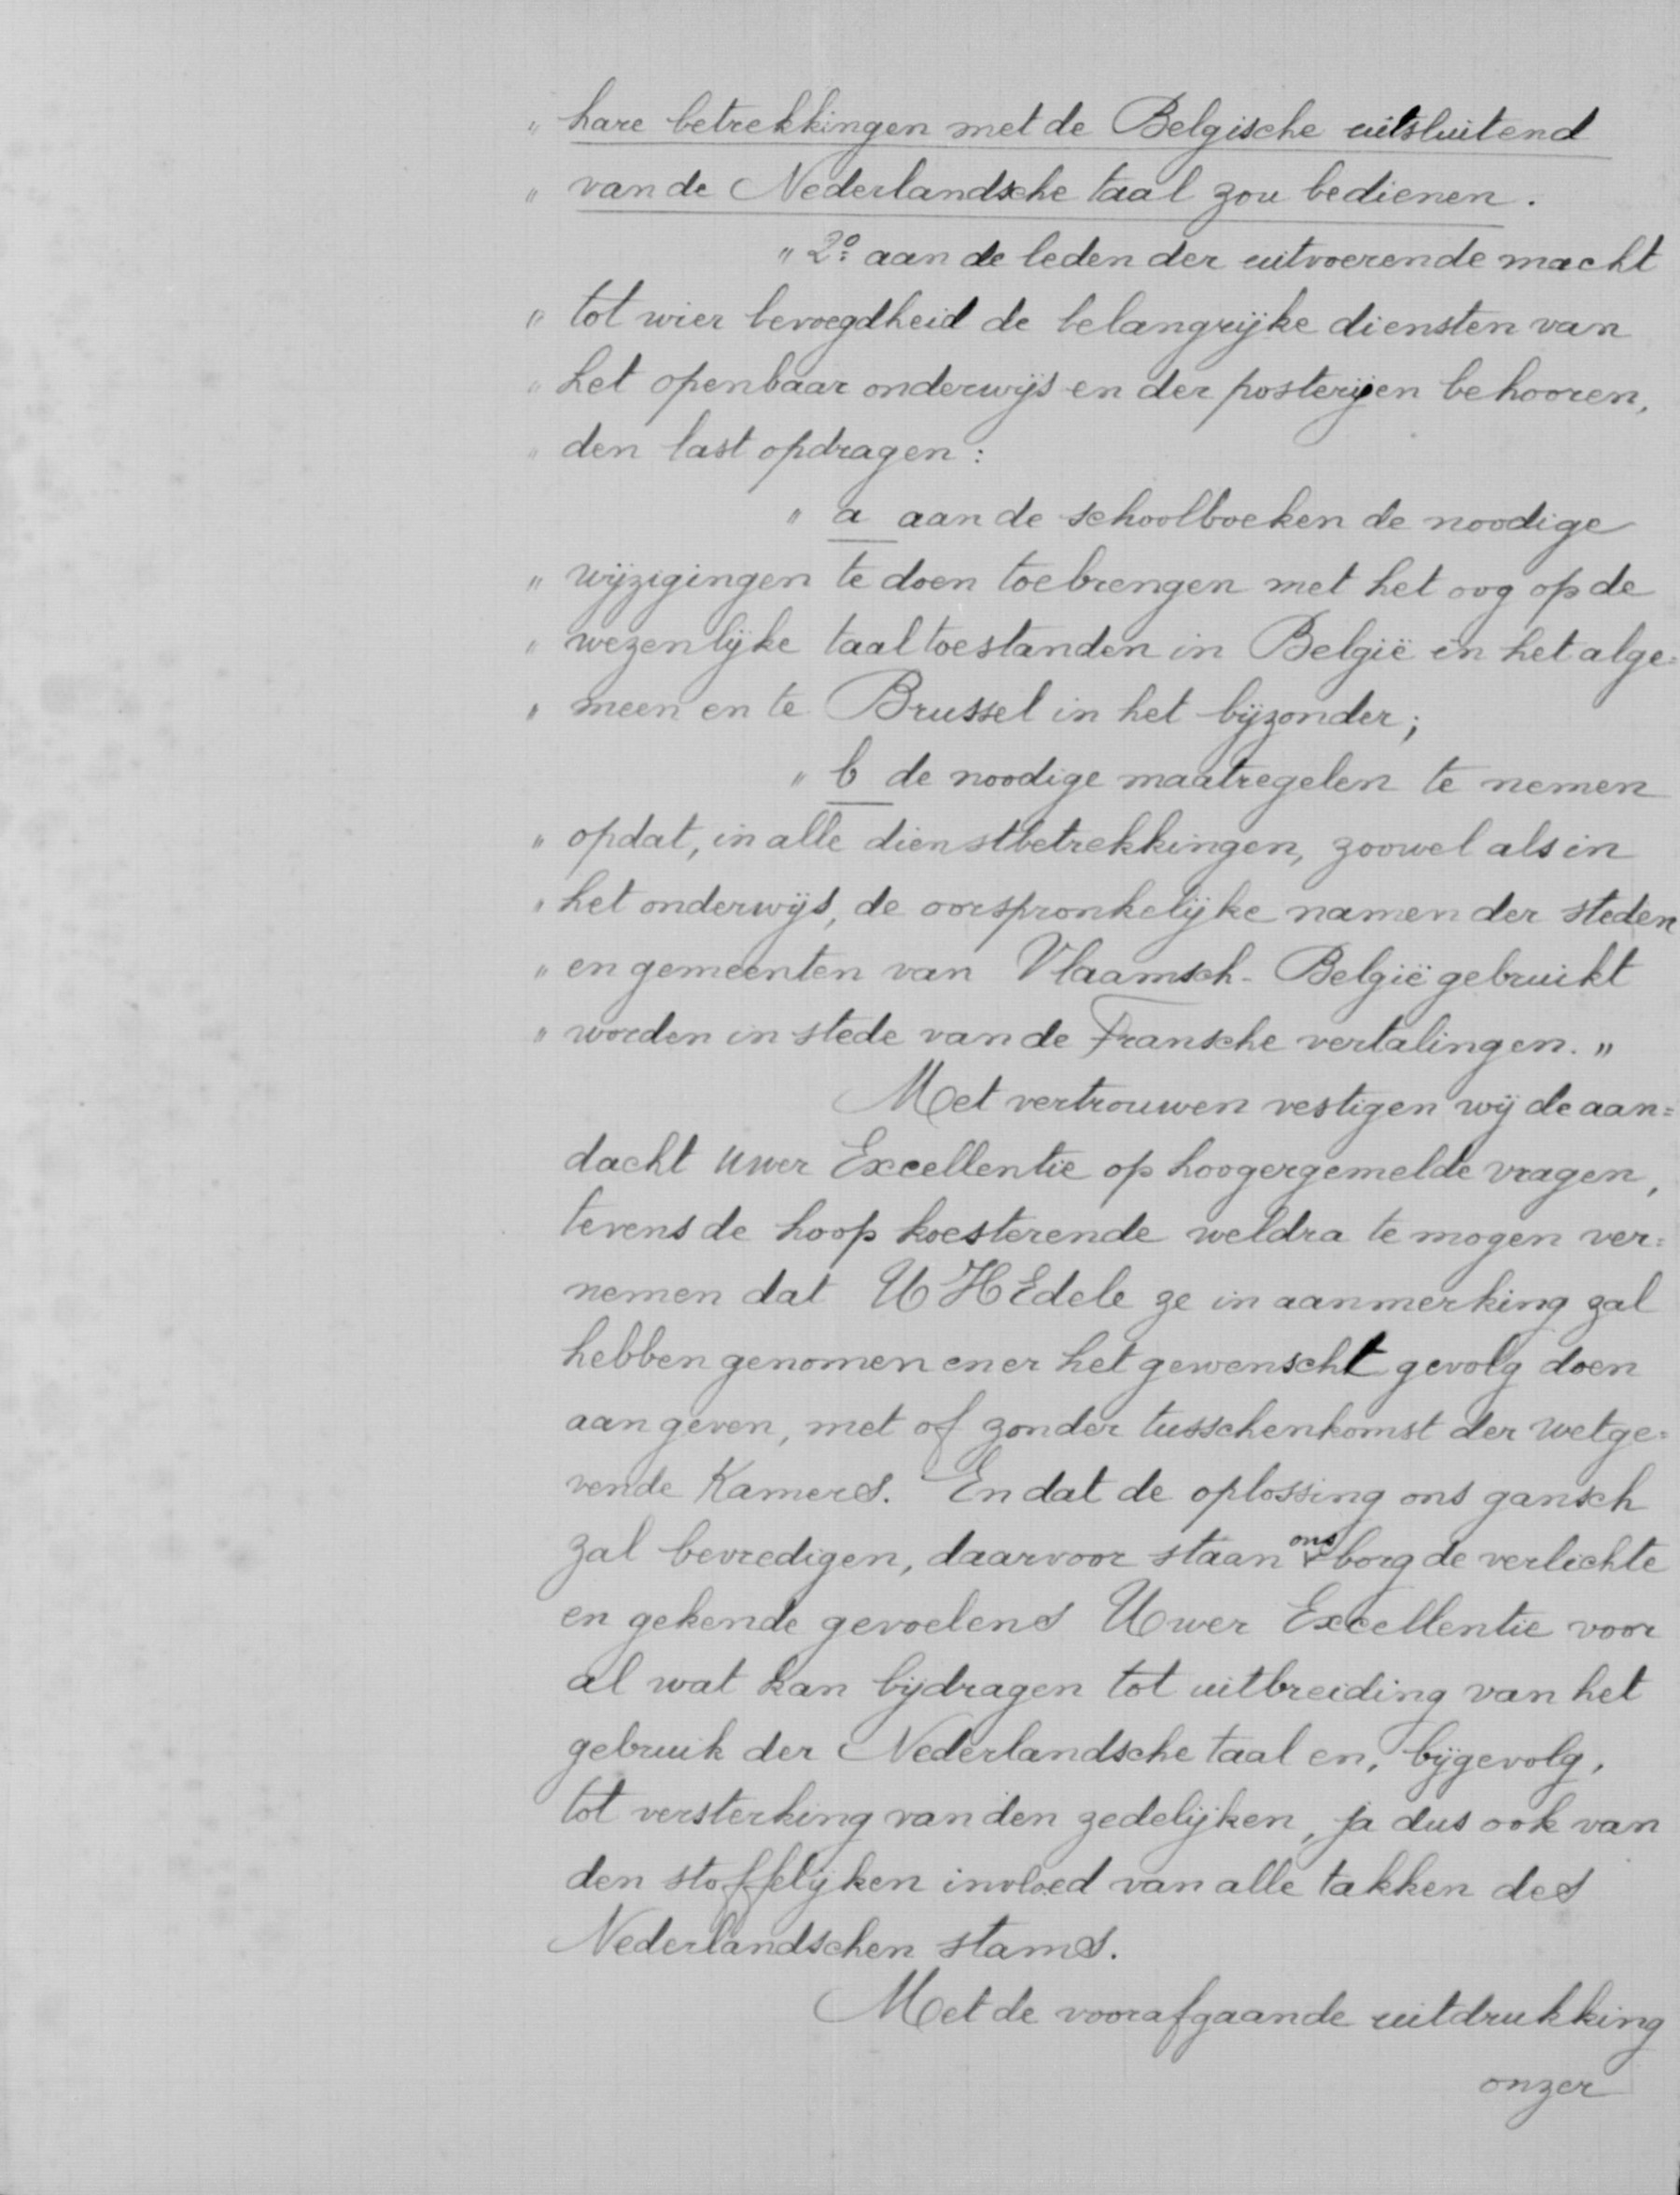 „ hare betrekkingen met de Belgische uitsluitend
„ van de Nederlandsche taal zou bedienen.
„ 2º aan de leden der uitvoerende macht
„ tot wier bevoegdheid de belangrijke diensten van
„ het openbaar onderwijs en der posterijen behooren,
„ den last opdragen:
„ a aan de schoolboeken de noodige
„ wijzigingen te doen toebrengen met het oog op de
„ wezenlijke taaltoestanden in België in het alge=
„ meen en te Brussel in het bijzonder;
„ b de noodige maatregelen te nemen
„ opdat, in alle dienstbetrekkingen, zoowel als in
„ het onderwijs, de oorspronkelijke namen der steden
„ en gemeenten van Vlaamsch-België gebruikt
„ worden in stede van de Fransche vertalingen. „
Met vertrouwen vestigen wij de aan=
dacht uwer Excellentie op hoogergemelde vragen,
tevens de hoop koesterende weldra te mogen ver=
nemen dat U HEdele ze in aanmerking zal
hebben genomen en er het gewenscht gevolg doen
aan geven, met of zonder tusschenkomst der wetge=
vende Kamers. En dat de oplossing ons gansch
zal bevredigen, daarvoor staan ons borg de verlichte
en gekende gevoelens Uwer Excellentie voor
al wat kan bijdragen tot uitbreiding van het
gebruik der Nederlandsche taal en, bijgevolg,
tot versterking van den zedelijken, ja dus ook van
den stoffelijken invloed van alle takken des
Nederlandschen stams.
Met de voorafgaande uitdrukking
onzer